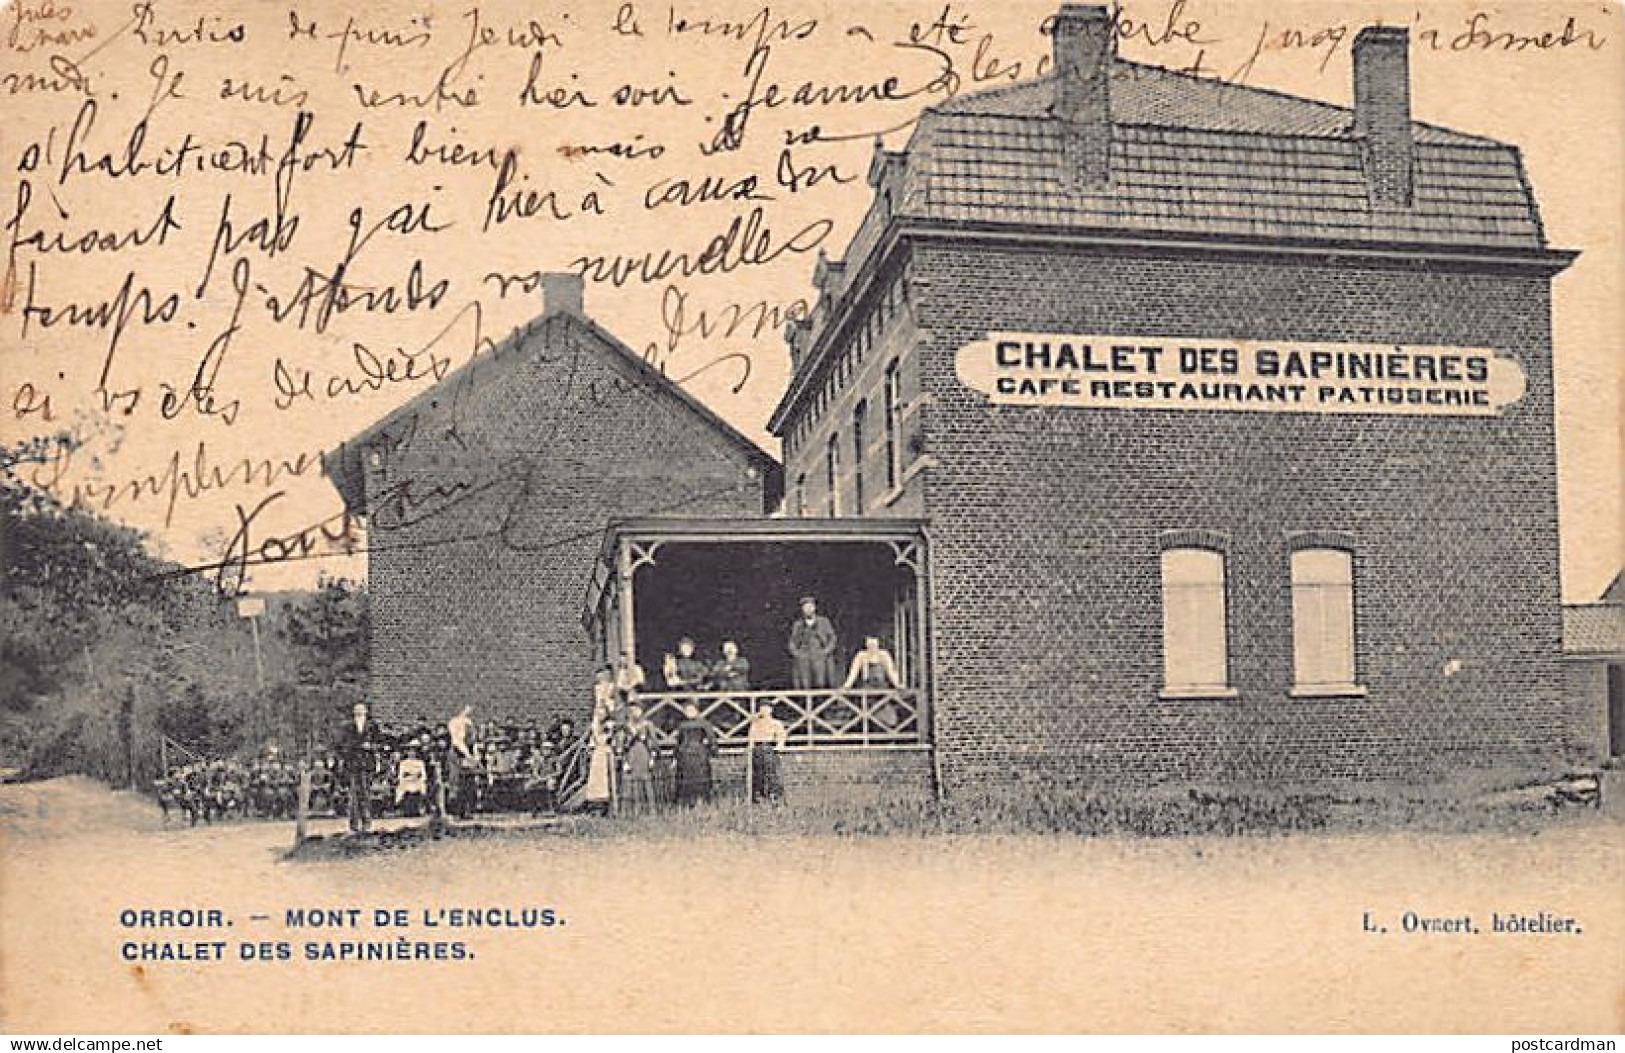 Jules
Partis depuis Jeudi le temps a été superbe jusqu'à Samedi
midi. Je suis rentré hier soir. Jeanne & les enfants
s'habituent fort bien, mais il ne
faisait pas gai hier à cause du
temps. J'attends vos nouvelles
si vs êtes décidées pour Dimanche
Compliments Jules
CHALET DES SAPINIÈRES
CAFÉ RESTAURANT PATISSERIE
ORROIR. — MONT DE L'ENCLUS.
CHALET DES SAPINIÈRES.
L. Ovaert, hôtelier.
delcampe.net
postcardman